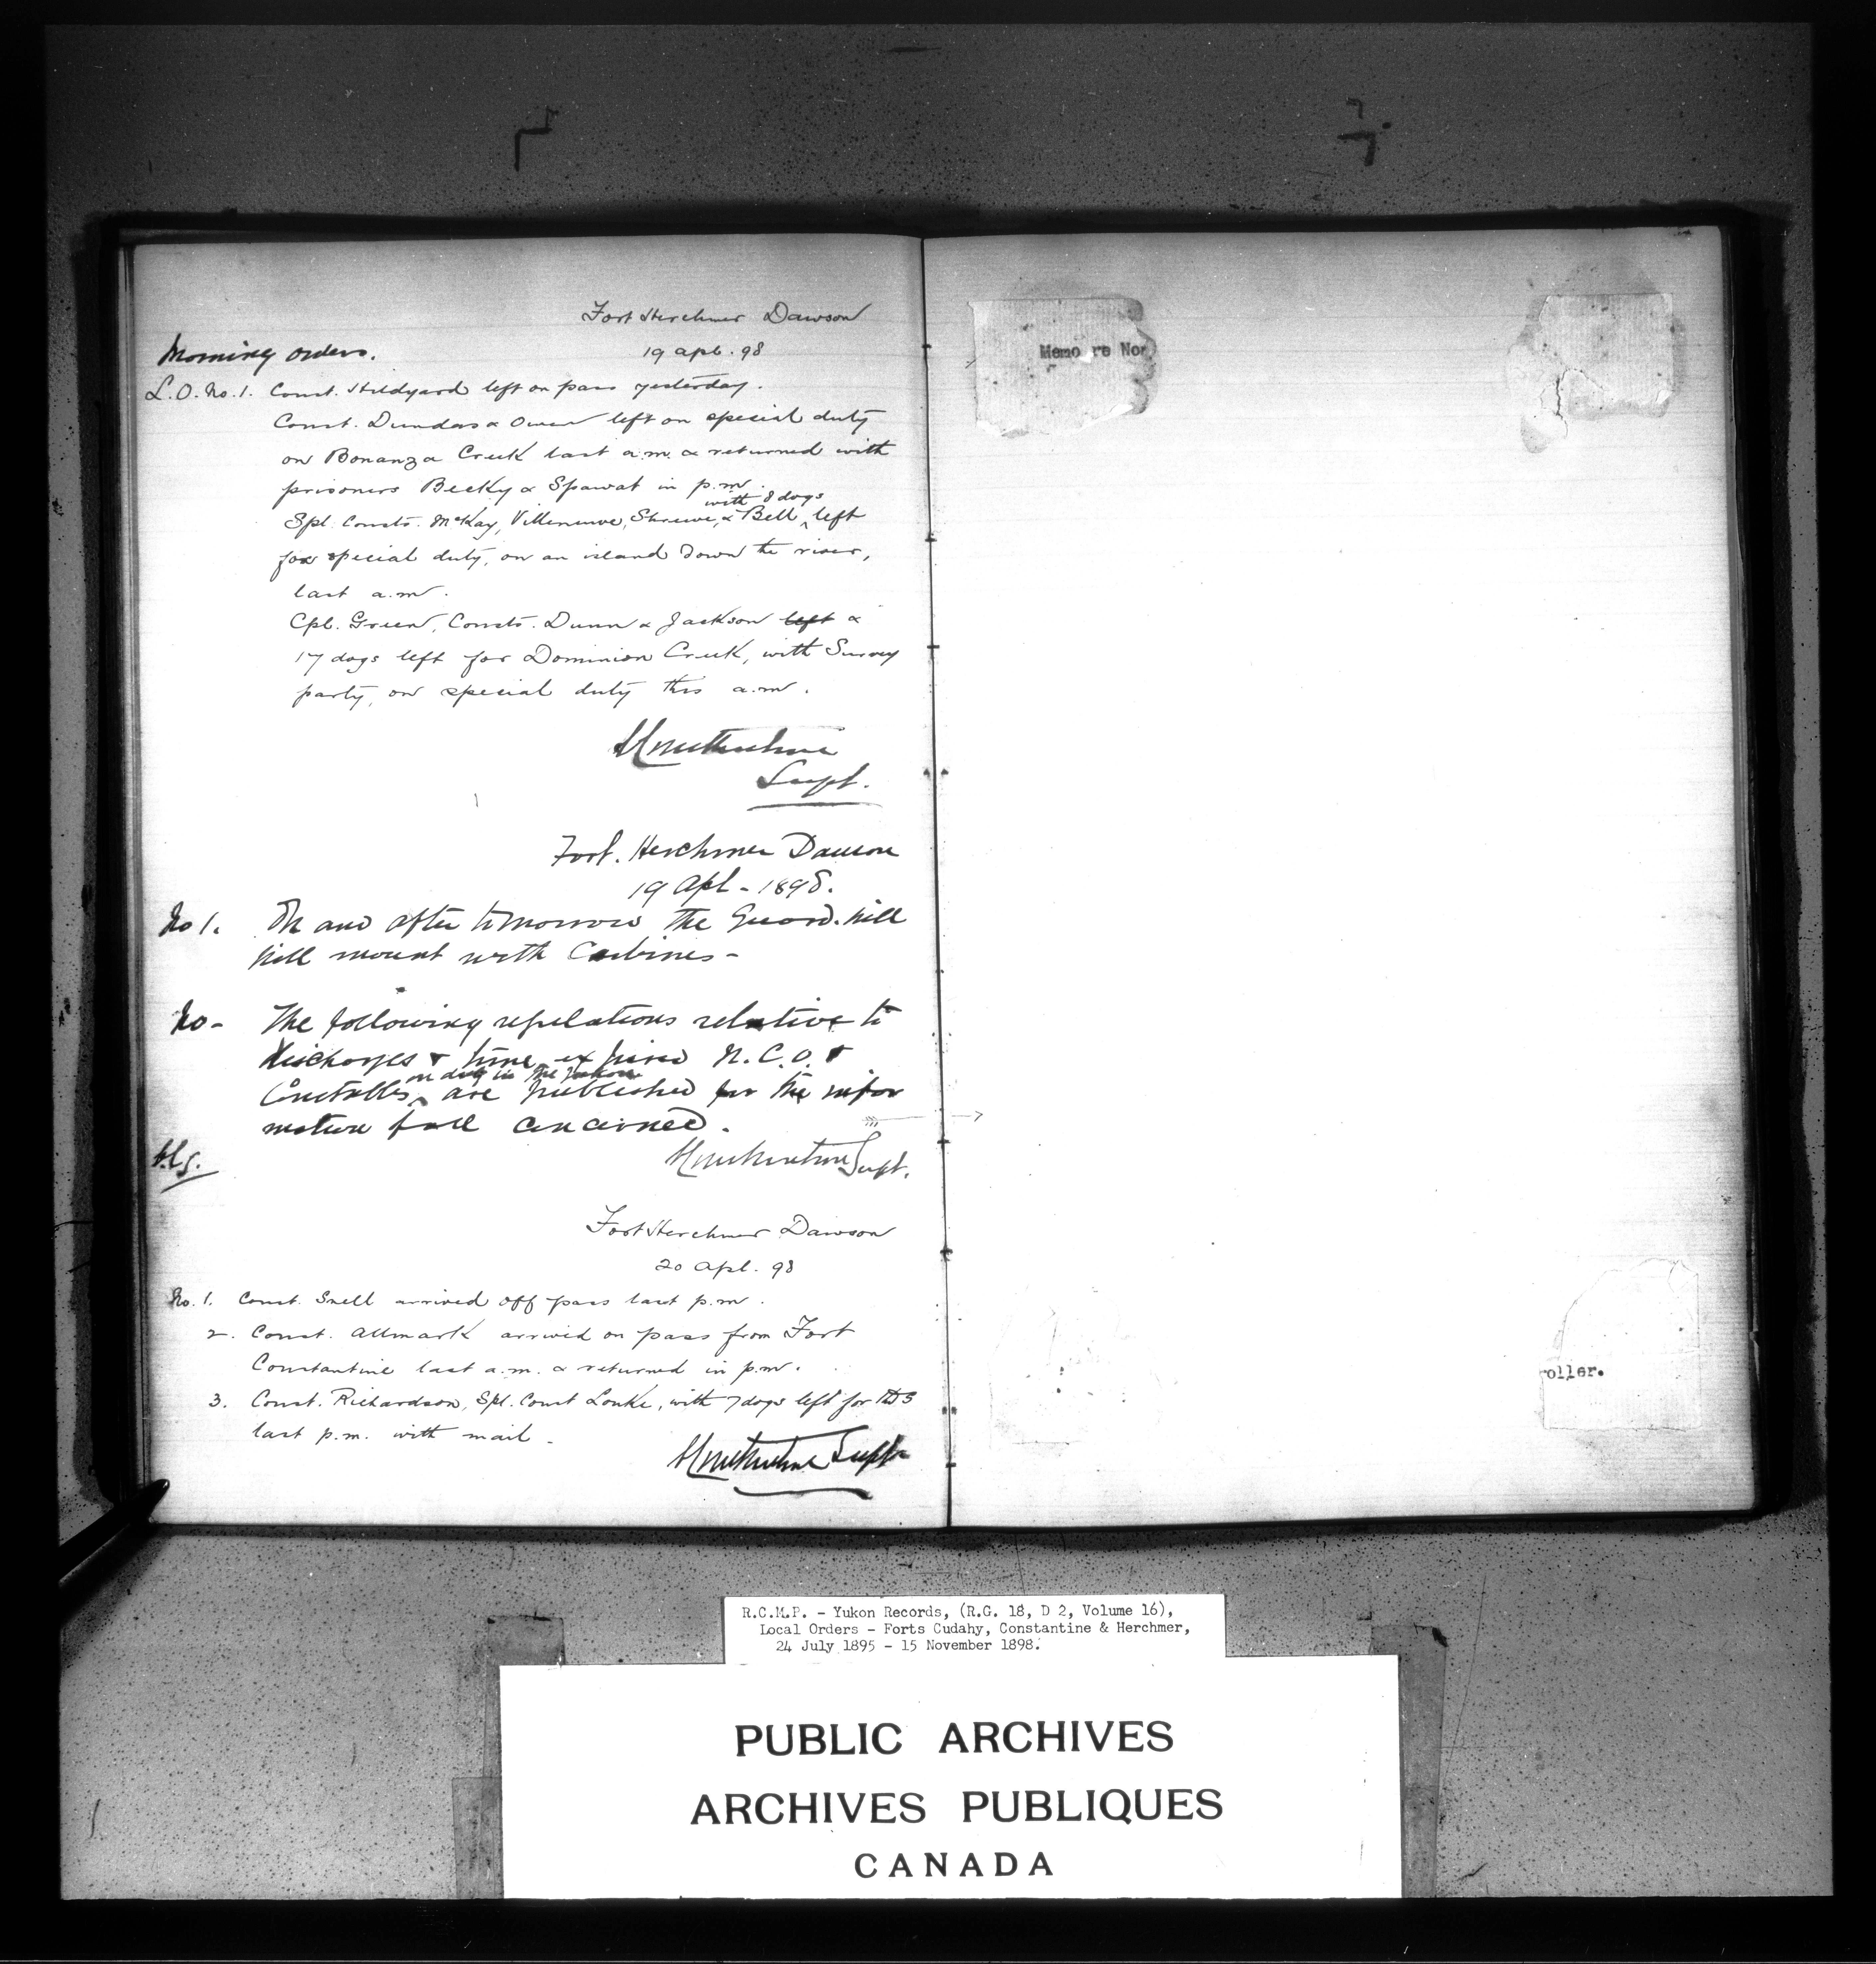 Fort Herchmer Dawson
Morning orders. 19 apl. 98
L.O. No. 1. Const. Hildyard left on pass yesterday.
Const. Dundas & Owen left on special duty
on Bonanza Creek last a.m. & returned with
prisoners Becky & Spawat in p.m.
with 8 dogs
Spl. Consts. McKay, Villeneuve, Shreuve, & Bell, left
for special duty, on an island down the river,
last a.m.
Cpl. Green, Consts. Dunn & Jackson left &
17 dogs left for Dominion Creek, with Survey
party, on special duty this a.m.
Supt.
Fort. Herchmer Dawson
19 Apl - 1898.
No 1. On and after tomorrow the Guard. will
will mount with Carbines -
No - The following regulations relative to
discharges & time expired N.C.O. &
on duty in the Yukon
Constables are published for the infor
mation of all concerned.
Supt.
Fort Herchmer Dawson
20 Apl. 98
No. 1. Const. Snell arrived off pass last p.m.
2. Const. Allmark arrived on pass from Fort
Constantine last a.m. & returned in p.m.
3. Const. Richardson, Spl. Const Lonke, with 7 dogs left for
last p.m. with mail -
Supt
Memo re Nor
roller.
R.C.M.P. - Yukon Records, (R.G. 18, D 2, Volume 16),
Local Orders - Forts Cudahy, Constantine & Herchmer,
24 July 1895 - 15 November 1898.
PUBLIC ARCHIVES
ARCHIVES PUBLIQUES
CANADA